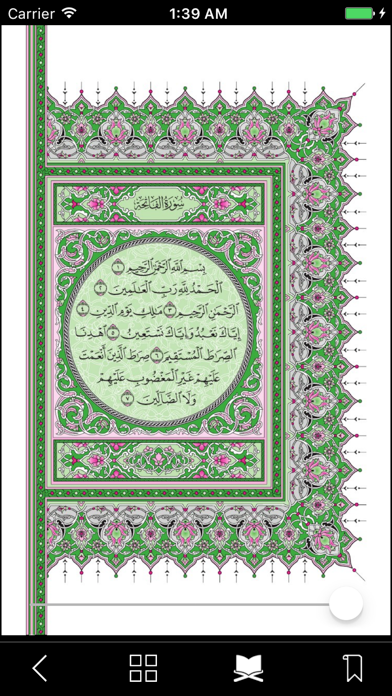 Carrier 1:39 AM
سُورَةُ الفَاتِحَةِ
بِسْمِ ٱللَّهِ ٱلرَّحْمَٰنِ ٱلرَّحِيمِ ۝١
ٱلْحَمْدُ لِلَّهِ رَبِّ ٱلْعَٰلَمِينَ ۝٢
ٱلرَّحْمَٰنِ ٱلرَّحِيمِ ۝٣ مَٰلِكِ يَوْمِ ٱلدِّينِ ۝٤
إِيَّاكَ نَعْبُدُ وَإِيَّاكَ نَسْتَعِينُ ۝٥ ٱهْدِنَا
ٱلصِّرَٰطَ ٱلْمُسْتَقِيمَ ۝٦ صِرَٰطَ ٱلَّذِينَ أَنْعَمْتَ
عَلَيْهِمْ غَيْرِ ٱلْمَغْضُوبِ عَلَيْهِمْ
وَلَا ٱلضَّآلِّينَ ۝٧